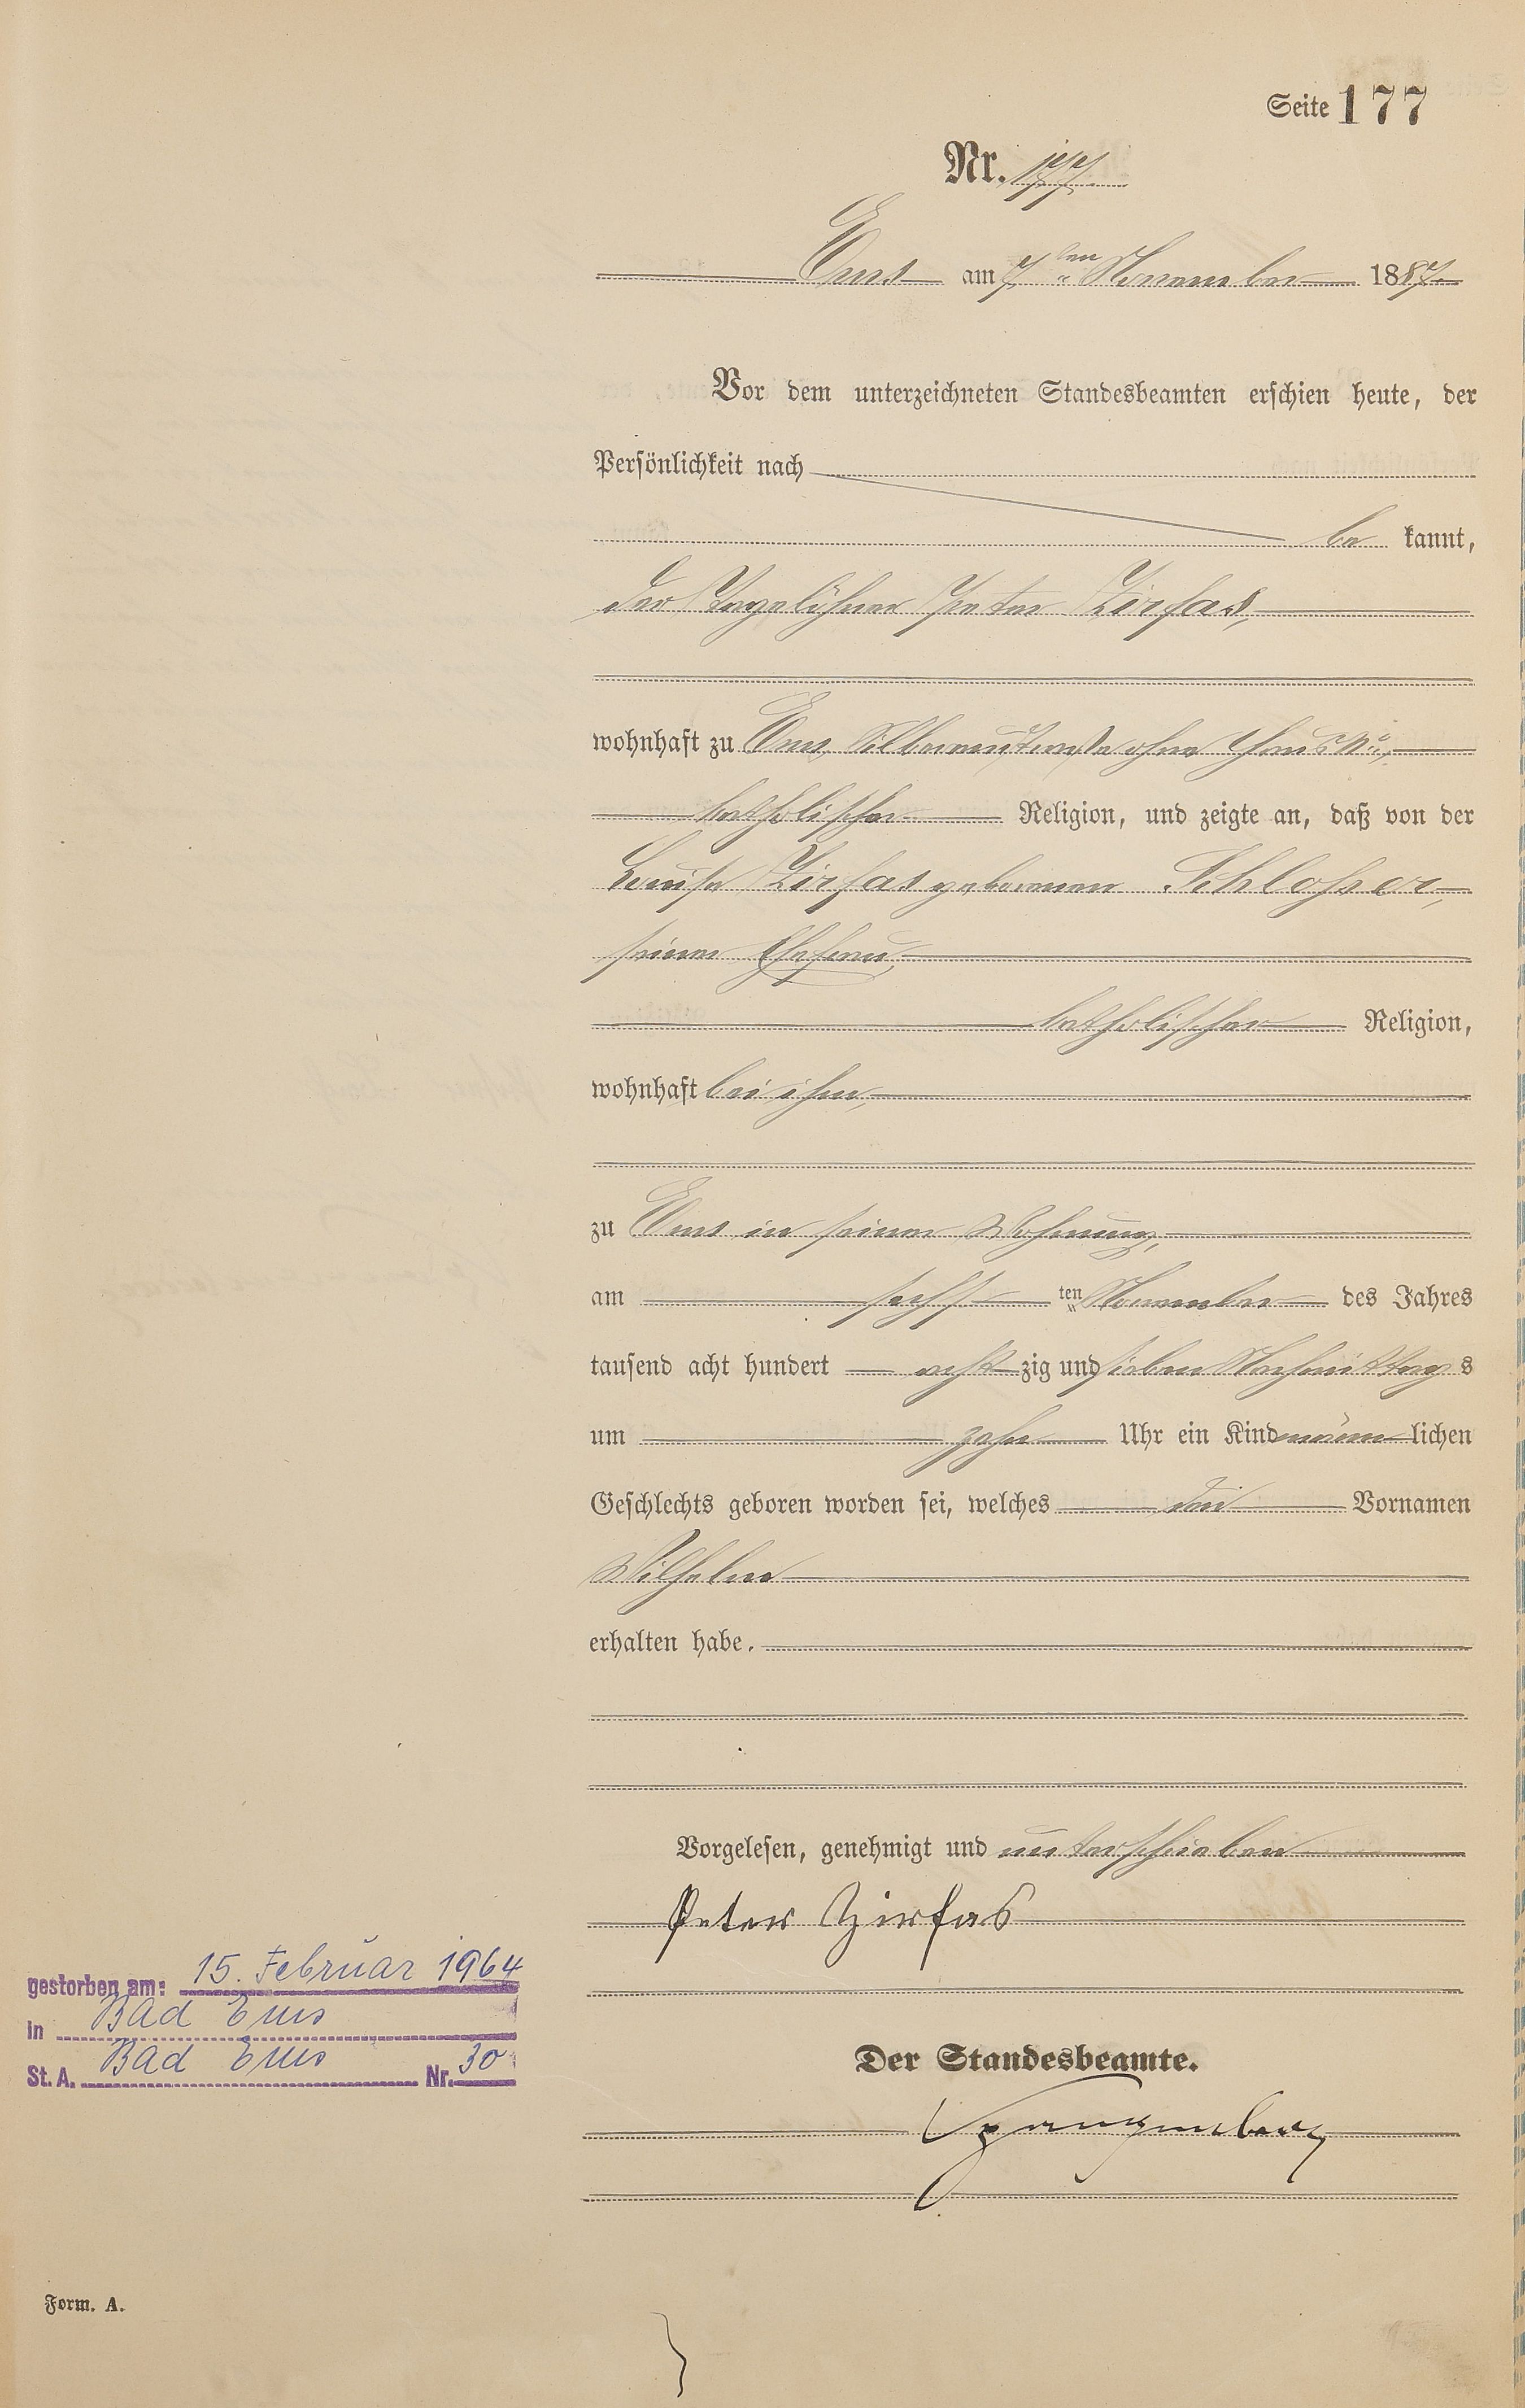 Seite 177
Nr. 177
Ems am 7ten November 1887
Vor dem unterzeichneten Standesbeamten erschien heute, der
Persönlichkeit nach
be kannt,
der Tagelöhner Peter Zirfas,
wohnhaft zu Ems, Silberaustraße ohne Haus No,
katholischer Religion, und zeigte an, daß von der
Louise Zirfas geborenen Schlosser,
seiner Ehefrau,
katholischer Religion,
wohnhaft bei ihm,
zu Ems in seiner Wohnung,
am sechsten November des Jahres
tausend acht hundert acht zig und sieben Nachmittags
um zehn Uhr ein Kind männlichen
Geschlechts geboren worden sei, welches den Vornamen
Wilhelm
erhalten habe.
Vorgelesen, genehmigt und unterschrieben
Peter Zirfas
gestorben am: 15. Februar 1964
in Bad Ems
St. A. Bad Ems Nr. 30
Der Standesbeamte.
Spangenberg
Form. A.